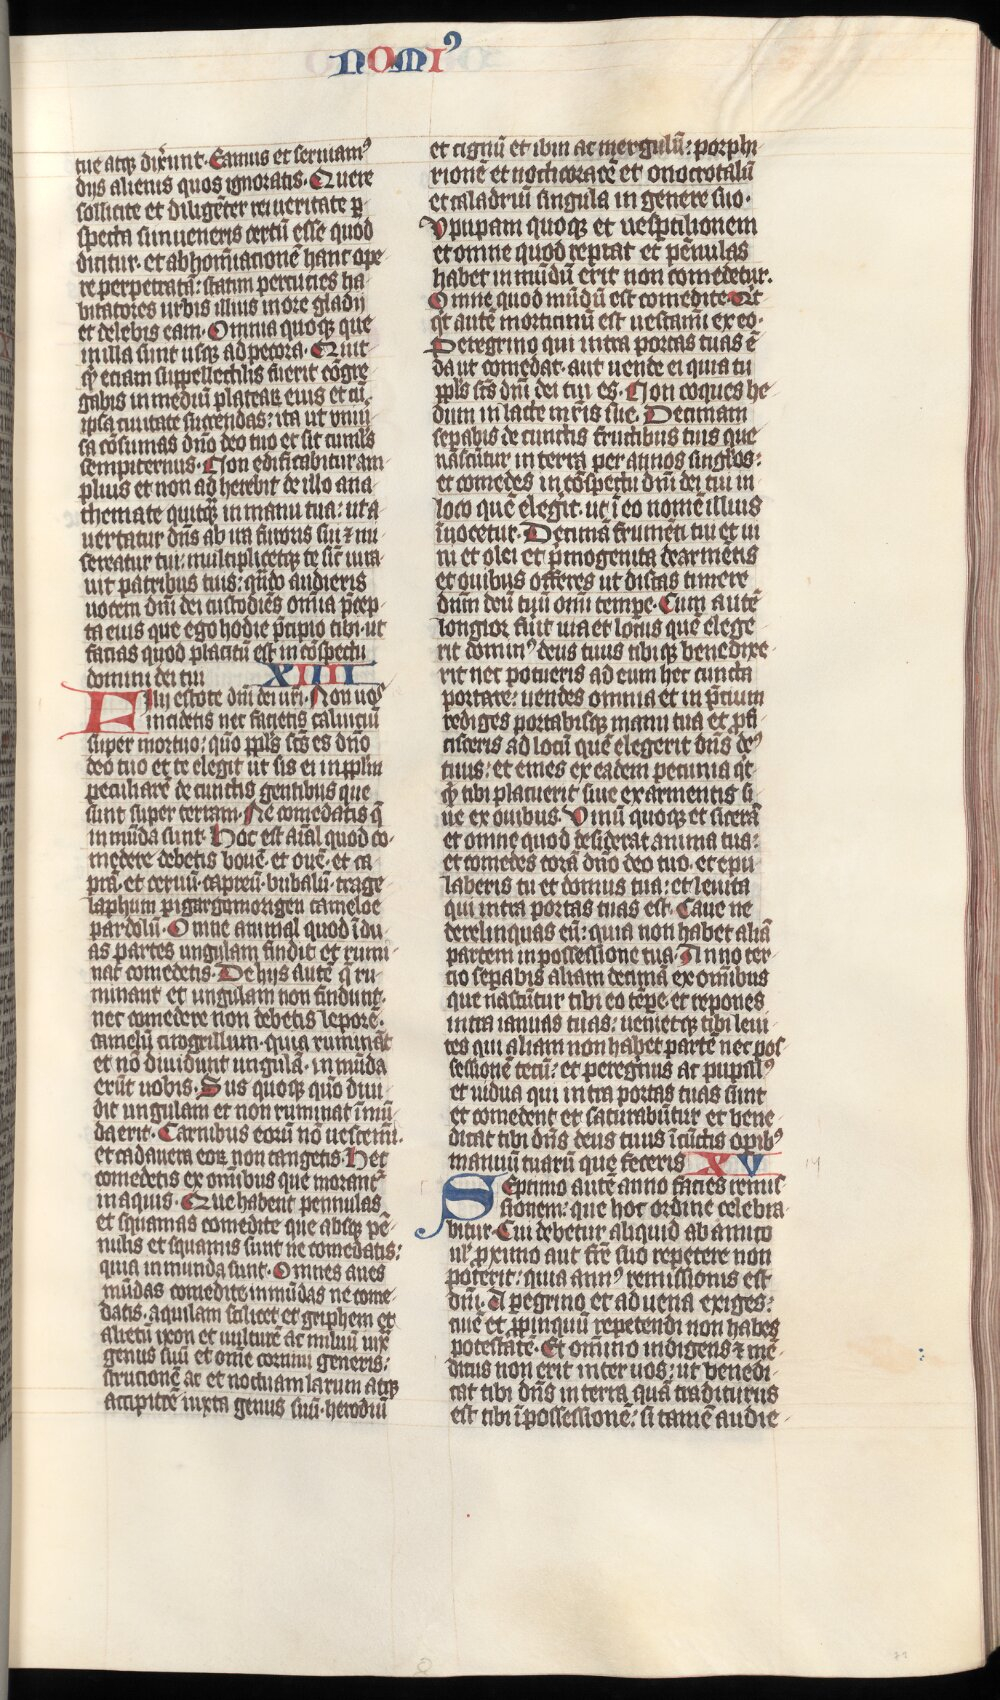 NOMIꝰ
tue atqꝫ dix̄unt. Eamus et seruiamꝰ
dijs alienis quos ignoratis. Quere
sollicite et diligēter rei ueritate ꝑ
specta si inueneris certū esse quod
dicitur. et abhom̄inationē hanc ope
re perpetratā: statim percucies ha
bitatores urbis illius in ore gladij
et delebis eam. Omnia quoqꝫ que
in illa sunt usqꝫ ad pecora. Quit
qͥd etiam suppellectilis fuerit cōgre
gabis in mediū plateaꝝ eius et cū
ipsa ciuitate sucendas: ita ut vniu
sa cōsumas dn̄o deo tuo et sit tumls̄
sempiternus. Non edificabitur am
plius et non adherebit de illo ana
themate quitqꝫ in manu tua: ut a
uertatur dn̄s ab ira furoris sui ⁊ mi
sereatur tui: multiplicetqꝫ te sic̄ iura
uit patribus tuis: qn̄do audieris
uocem dn̄i dei custodiēs om̄ia p̄cep
ta eius que ego hodie p̄cipio tibi. ut
facias quod placitū est in cōspectu
domini dei tui XIIII
Filij estote dn̄i dei uri. Non uos
incidetis nec facietis caluiciū
super mortuo: qūo ppl̄s sc̄s es dn̄o
deo tuo et te elegit ut sis ei in pplm̄
peculiarē de cunctis gentibus que
sunt super terram. Ne comedatis q̄
inmūda sunt. Hoc est aīal quod co
medere debetis bouē. et ouē. et ca
prā. et ceruū. capreū. bubalū. trage
laphum pigargum origen cameloe
pardolū. Omne animal quod ī du
as partes ungulam findit et rumi
nat comedetis. De hijs autē q̄ ru
minant et ungulam non findunt.
nec comedere non debetis leporē.
camelū cirogrillum. quia rumināt
et nō diuidunt ungulā. inmūda
erūt uobis. Sus quoqꝫ qūo diui
dit ungulam et non ruminat īmū
da erit. Carnibus eorū nō uescemī.
et cadauera eoꝝ non tangetis. Hec
comedetis ex om̄ibus que morant̄
in aquis. Que habent pennulas
et squamas comedite que absqꝫ pē
nulis et squamis sunt ne comedatis:
quia inmunda sunt. Omnes aues
mūdas comedite inmūdas ne come
datis. aquilam scilicet et griphem et
alietū ixon et uulturē ac miluū iux̄
genus suū et om̄e coruini generis:
strucionē ac et noctuam larum atqꝫ
accipitrē iuxta genus suū. herodiū
et cignū et ibin ac mergulū: porphi
rionē et nocticoracē et onocrotalū
et caladriū singula in genere suo.
Vpupam quoqꝫ et uesp̄tilionem
et omne quod reptat et pēnulas
habet inmūdū erit non comedetur.
Omne quod mūdū est comedite. Qͥt
qͥt autē morticinū est uescamī ex eo.
Peregrino qui intra portas tuas ē
da ut comedat. aut uende ei quia tu
ppl̄s sc̄s dn̄i dei tui es. Non coques he
dum in lacte mr̄is sue. Decimam
sepabis de cunctis fructibus tuis que
nāscūtur in terra per annos singlos:
et comedes in cōspectu dn̄i dei tui in
loco quē elegit. ut ī eo nomē illius
īuocetur. Decimā frumēti tui et ui
ni et olei et p̄mogenita de armētis
et ouibus offeres ut discas timere
dn̄m deū tuū om̄i tempe. Cum autē
longior fūit uia et locus quē elege
rit dominꝰ deus tuus tibiqꝫ benedixe
rit nec potueris ad eum hec cuncta
portare: uendes omnia et in p̄cium
rediges portabisqꝫ manu tua et ꝓfi
cisceris ad locū quē elegerit dn̄s deꝰ
tuus: et emes ex eadem pecunia qͥt
qͥd tibi placuerit siue ex armentis si
ue ex ouibus. Vinū quoqꝫ et sicerā
et omne quod desiderat anima tua:
et comedes corā dn̄o deo tuo. et epu
laberis tu et domus tua: et leuita
qui intra portas tuas est. Caue ne
derelinquas eū: quia non habet aliā
partem in possessione tua. Anno ter
cio sepabis aliam decimā ex om̄ibus
que nascūtur tibi eo tēpe. et repones
intra ianuas tuas: uenietqꝫ tibi leui
tes qui aliam non habet partē nec pos
sessionē tecū: et peregrius ac pupillꝰ
et uidua qui intra portas tuas sunt
et comedent et saturabūtur et bene
dicat tibi dn̄s deus tuus ī cūctis opibꝰ
manuū tuarū que feceris XV
Septimo autē anno facies remis
sionem: que hoc ordine celebra
bitur. Cui debetur aliquid ab amico
ul̄ ꝓximo aut fr̄e suo repetere non
poterit: quia annꝰ remissionis est
dn̄i. A pegrino et aduena exiges:
ciuē et ꝓpinquū repetendi non habes
potestatē. Et omīno indigens ⁊ mē
dicus non erit inter uos: ut benedi
cat tibi dn̄s in terra quā traditurus
est tibi ī possessionē: si tamē audie